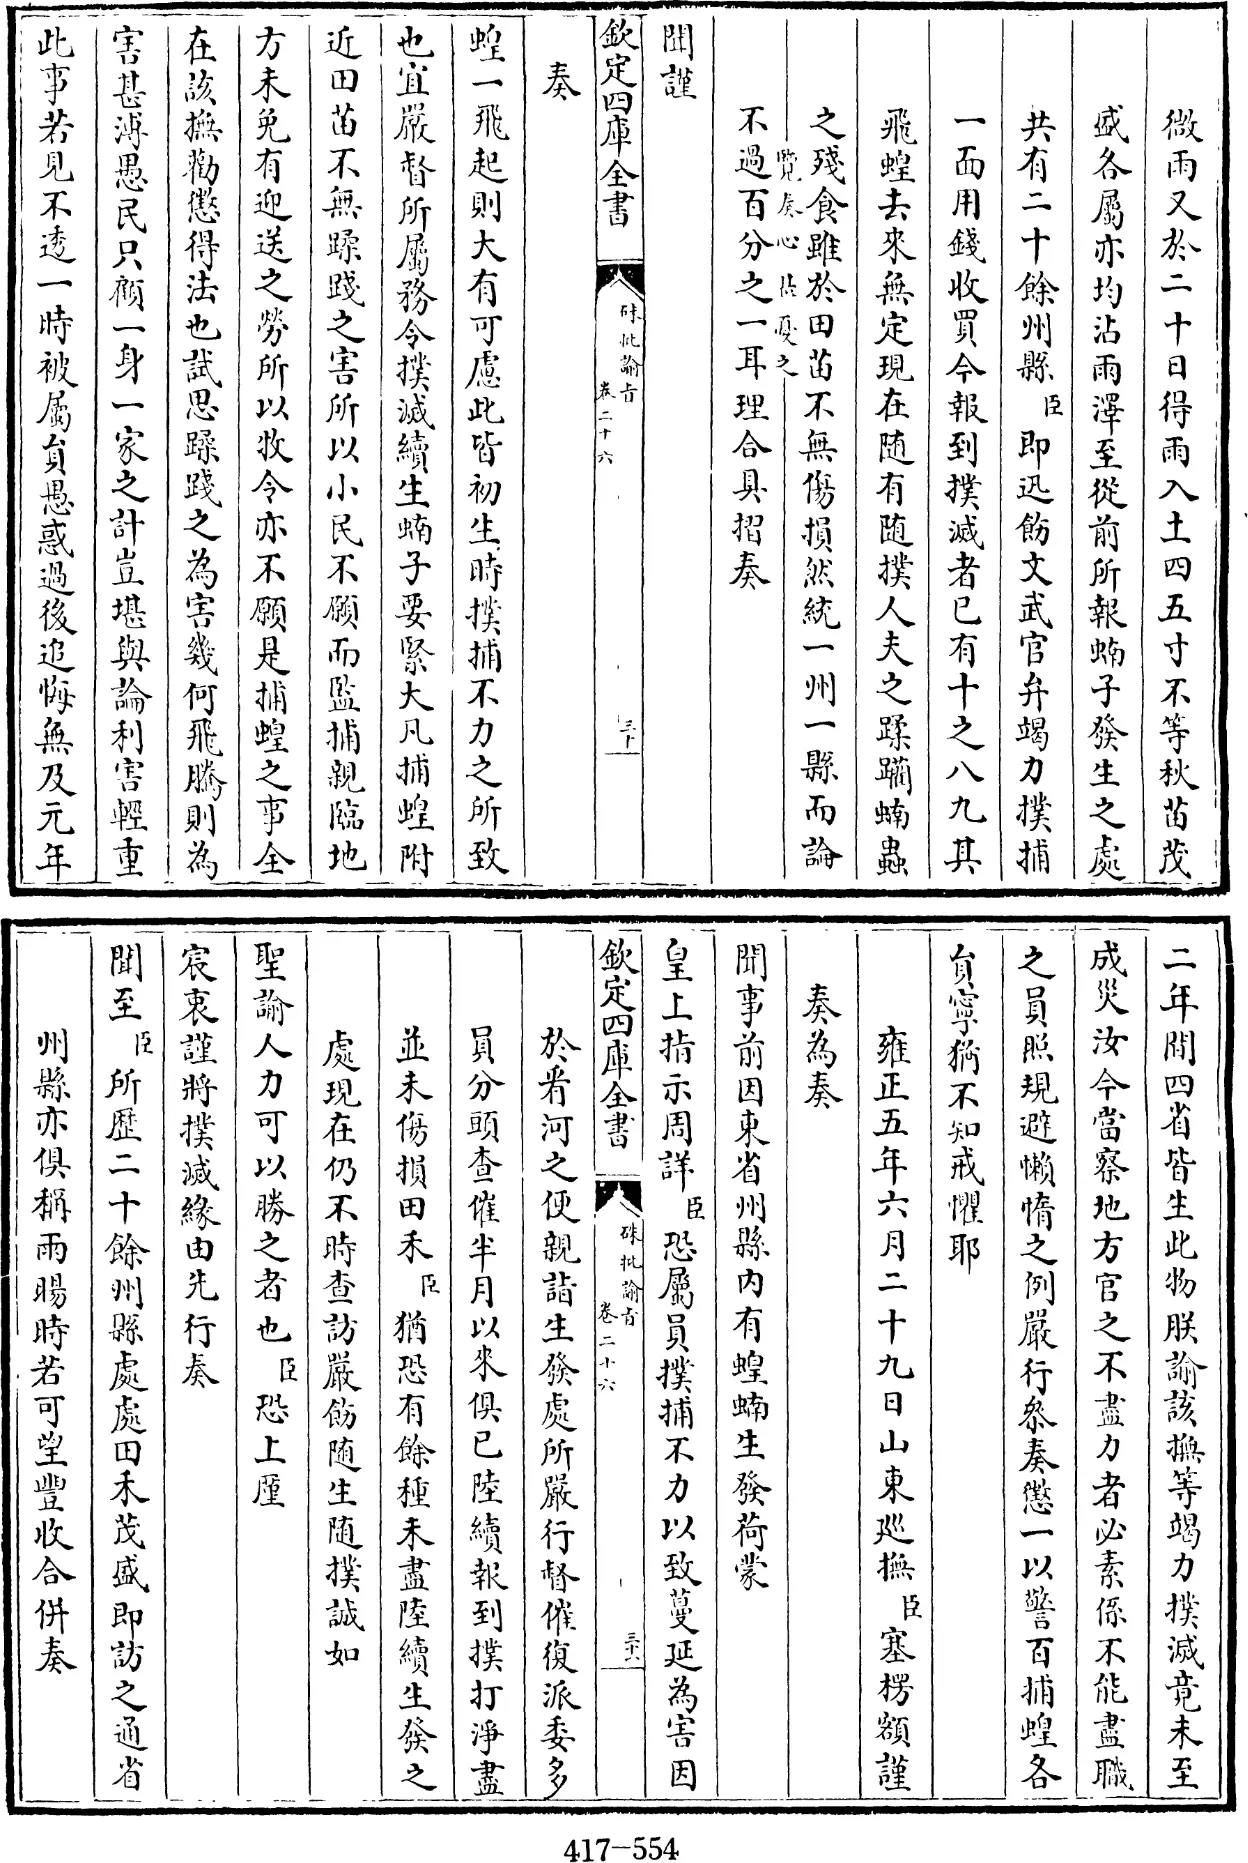 微雨又於二十日得雨入土四五寸不等秋苗茂
盛各屬亦均沾雨澤至從前所報蝻子發生之處
共有二十餘州縣臣即迅飭文武官弁竭力撲捕
一面用錢收買今報到撲滅者已有十之八九其
飛蝗去來無定現在随有随撲人夫之蹂躪蝻蟲
之殘食雖於田苗不無傷損然統一州一縣而論
覽奏心
憂之
不過百分之一耳理合具摺奏
聞謹
欽定四庫全書
硃批諭旨
卷二十六
三十
奏
蝗一飛起則大有可慮此皆初生時撲捕不力之所致
也宜嚴督所屬務令撲滅續生蝻子要緊大凡捕蝗附
近田苗不無蹂踐之害所以小民不願而監捕親臨地
方未免有迎送之勞所以牧令亦不願是捕蝗之事全
在該撫勸懲得法也試思蹂踐之為害幾何飛騰則為
害甚溥愚民只顧一身一家之計豈堪與論利害輕重
此事若見不透一時被屬員愚惑過後追悔無及元年
二年間四省皆生此物朕諭該撫等竭力撲滅竟未至
成災汝今當察地方官之不盡力者必素係不能盡職
之員照規避懶惰之例嚴行叅奏懲一以警百捕蝗各
員寧猶不知戒懼耶
雍正五年六月二十九日山東廵撫臣塞楞額謹
奏為奏
聞事前因東省州縣内有蝗蝻生發荷蒙
皇上指示周詳臣恐屬員撲捕不力以致蔓延為害因
欽定四庫全書
硃批諭旨
卷二十六
於看河之便親詣生發處所嚴行督催復派委多
員分頭查催半月以來俱已陸續報到撲打淨盡
並未傷損田禾臣猶恐有餘種未盡陸續生發之
處現在仍不時查訪嚴飭随生随撲誠如
聖諭人力可以勝之者也臣恐上厪
宸衷謹將撲滅緣由先行奏
聞至臣所歷二十餘州縣處處田禾茂盛即訪之通省
州縣亦俱稱雨暘時若可望豐收合併奏
417-554